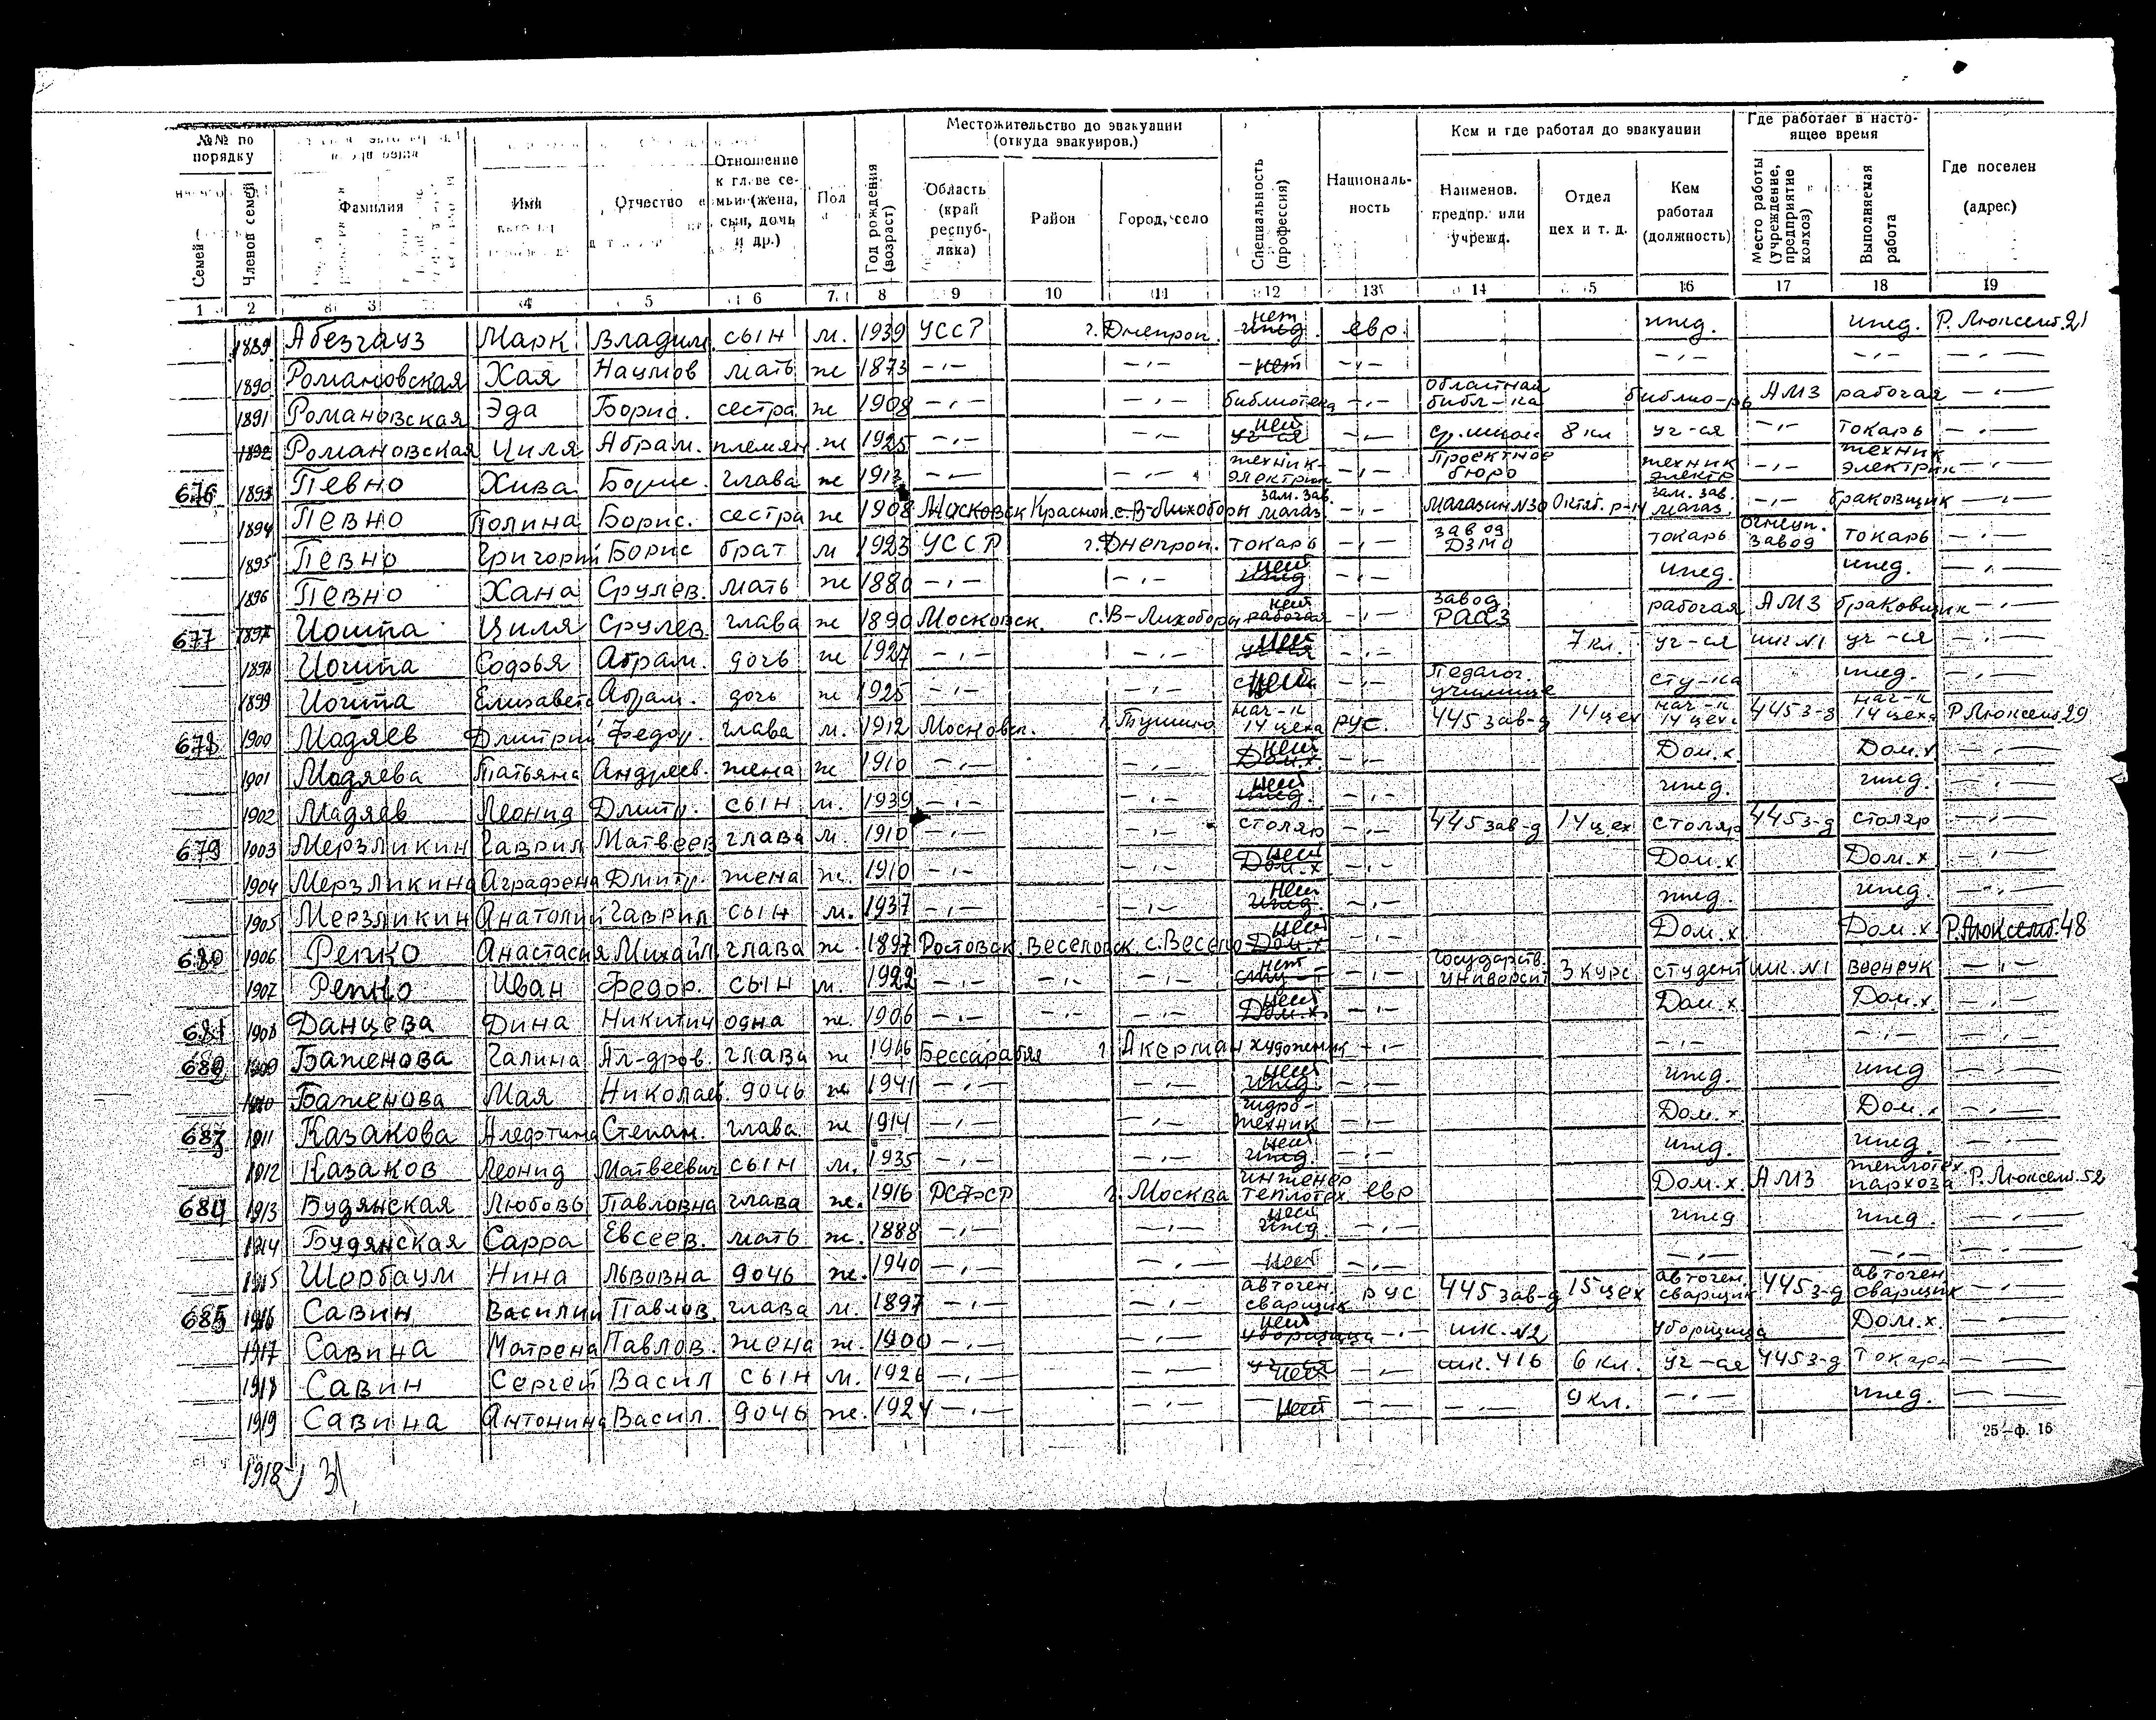 №№ по порядку
Местожительство до эвакуации (откуда эвакуиров.)
Кем и где работал до эвакуации
Где работает в настоящее время
Семей
Членов семей
Фамилия
Имя
Отчество
Отношение к главе семьи (жена, сын, дочь и др.)
Пол
Год рождения (возраст)
Область (край республика)
Район
Город, село
Специальность (профессия)
Националь-ность
Наименов. предпр. или учрежд.
Отдел цех и т. д.
Кем работал (должность)
Место работы (учреждение, предприятие колхоз)
Выполняемая работа
Где поселен (адрес)
1 2 3 4 5 6 7 8 9 10 11 12 13 14 15 16 17 18 19
1889 Абезгауз Марк Владим. сын м. 1939 УССР г. Днепроп. нет ижд. евр. ижд. ижд. Р. Люксемб. 21
1890 Романовская Хая Наумов мать ж 1873 -,- -,- нет -,- -,- -,- -,-
1891 Романовская Эда Борис. сестра ж 1908 -,- -,- библиотека -,- областная библ-ка библио-рь АМЗ рабочая -,-
1892 Романовская Циля Абрам. племян. ж 1925 -,- -,- нет уч-ся -,- ср. школ 8 кл уч-ся -,- токарь -,-
676 1893 Певно Хива Борис. глава ж 1913 -,- -,- техник-электрик -,- Проектное бюро техник электр -,- техник электрик -,-
1894 Певно Полина Борис. сестра ж 1908 Московск Красной с. В-Лихоборы зам. зав. магаз -,- магазин №30 Октяб. р-н зам. зав. магаз. -,- браковщик -,-
1895 Певно Григорий Борис брат м 1923 УССР г. Днепроп. токарь -,- завод ДЗМО токарь огнеуп. завод токарь -,-
1896 Певно Хана Срулев. мать ж 1880 -,- -,- нет ижд -,- ижд. ижд. -,-
677 1897 Иошпа Циля Срулев. глава ж 1890 Московск. с. В-Лихоборы нет рабочая -,- завод РААЗ рабочая АМЗ браковщик -,-
1898 Иошпа Софья Абрам. дочь ж 1927 -,- -,- нет -,- 7 кл. уч-ся шк №1 уч-ся -,-
1899 Иошпа Елизавета Абрам. дочь ж 1925 -,- -,- нет -,- Педагог. училище сту-ка ижд. -,-
678 1900 Модяев Дмитрий Федор. глава м. 1912 Московск. г. Тушино нач-к 14 цеха рус. 445 зав-д 14 цех нач-к 14 цеха 445 з-д нач-к 14 цеха Р. Люксемб. 29
1901 Модяева Татьяна Андреев. жена ж 1910 -,- -,- нет Дом.х. -,- Дом.х. Дом.х. -,-
1902 Мадяев Леонид Дмитр. сын м. 1939 -,- -,- нет ижд. -,- ижд. ижд. -,-
679 1903 Мерзликин Гаврил Матвеев глава м. 1910 -,- -,- столяр -,- 445 зав-д 14 цех столяр 445 з-д столяр -,-
1904 Мерзликина Аграфена Дмитр. жена ж. 1910 -,- -,- нет Дом.х -,- Дом.х. Дом.х -,-
1905 Мерзликин Анатолий Гаврил сын м. 1937 -,- -,- нет ижд. -,- ижд. ижд. -,-
680 1906 Репко Анастасия Михайл. глава ж. 1897 Ростовск. Веселовск. с. Весело нет Дом.х -,- Дом.х. Дом.х. Р. Люксемб. 48
1907 Репко Иван Федор. сын м. 1922 -,- -,- -,- нет -,- государств. университ 3 курс студент шк. №1 военрук -,-
681 1908 Данцева Дина Никитич одна ж. 1906 -,- -,- -,- нет Дом.х. -,- Дом.х. Дом.х. -,-
682 1909 Баженова Галина Ал-дров. глава ж 1916 Бессарабия г. Акерман художник -,- -,- -,- -,-
1910 Баженова Мая Николаев. дочь ж 1941 -,- -,- нет ижд. -,- ижд. ижд -,-
683 1911 Казакова Алефтина Степан. глава ж 1914 -,- -,- гидро-техник -,- Дом.х. Дом.х. -,-
1912 Казаков Леонид Матвеевич сын м. 1935 -,- -,- нет ижд. -,- ижд. ижд. -,-
684 1913 Будянская Любовь Павловна глава ж. 1916 РСФСР г. Москва инженер теплотех евр Дом.х. АМЗ теплотех. пархоза Р. Люксемб. 52
1914 Будянская Сарра Евсеев. мать ж. 1888 -,- -,- нет ижд. -,- ижд ижд. -,-
1915 Шербаум Нина Львовна дочь ж. 1940 -,- -,- нет -,- -,- -,- -,-
685 1916 Савин Василий Павлов. глава м. 1897 -,- -,- автоген. сварщик рус 445 зав-д 15 цех автоген. сварщик 445 з-д автоген сварщик -,-
1917 Савина Матрена Павлов. жена ж. 1900 -,- -,- нет уборщица -,- шк. №2 уборщица Дом.х. -,-
1918 Савин Сергей Васил сын м. 1926 -,- -,- уч-ся нет -,- шк. 416 6 кл. уч-ся 445 з-д токарь -,-
1919 Савина Антонина Васил. дочь ж. 1924 -,- -,- нет -,- -,- 9 кл. -,- ижд. -,-
25—ф. 16
1918 31